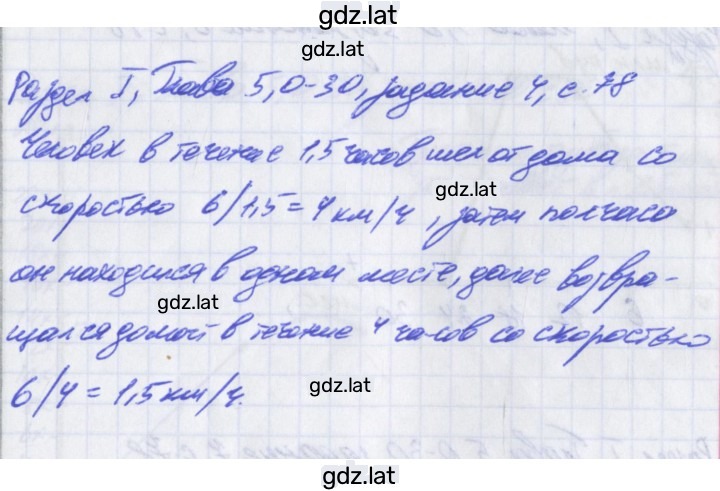 gdz.lat
gdz.lat
Раздел I, Глава 5, О-30, задание 4, с. 78
Человек в течение 1,5 часов шел от дома со
gdz.lat
скоростью 6/1,5 = 4 км/ч, затем полчаса
он находился в одном месте, далее возвра-
gdz.lat
щался домой в течение 4 часов со скоростью
gdz.lat
6/4 = 1,5 км/ч.
gdz.lat
gdz.lat